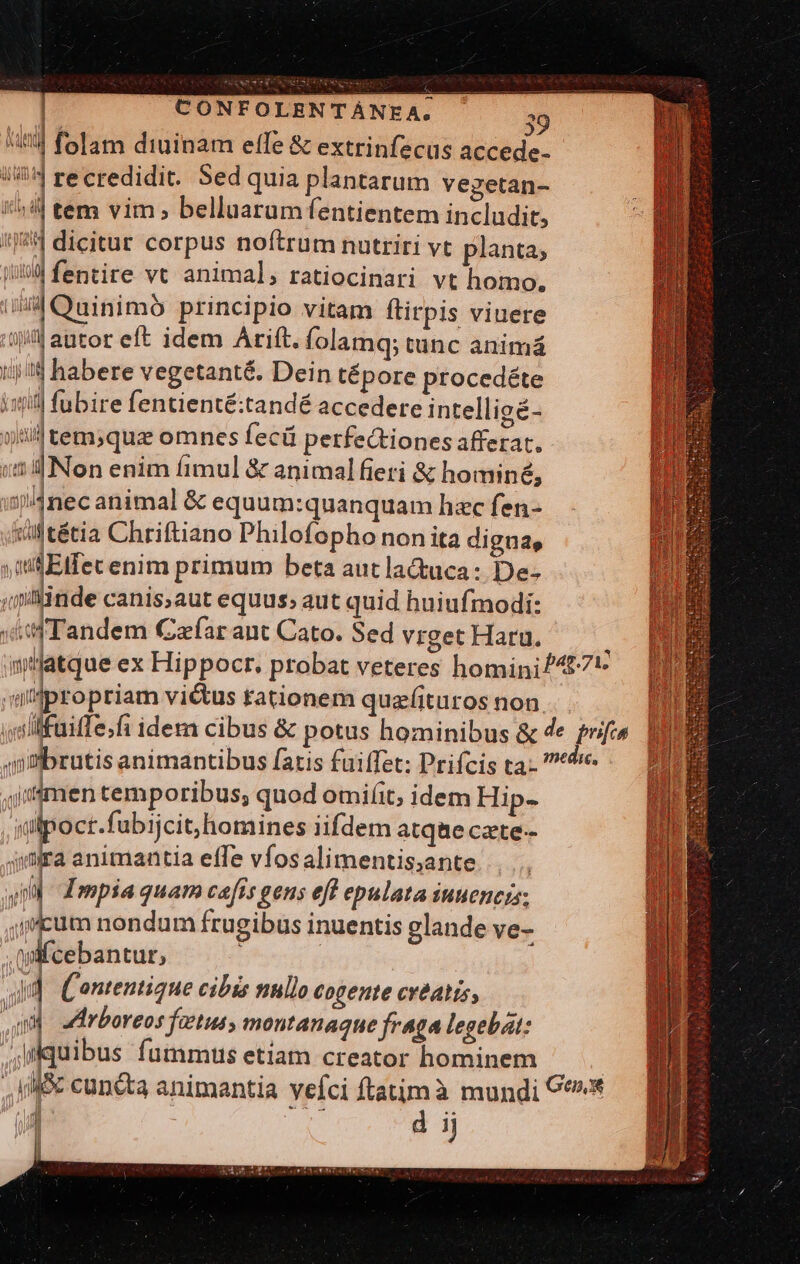 CONSOLENTÁNEA. 39
ſolam diuinam eſſe & extrinſecus accede-
re credidit. Sed quia plantarum vegetan-
tem vim, belluarum ſentientem includit,
dicitur corpus noſtrum nutriri vt planta,
ſentire vt animal, ratiocinari vt homo.
Quinimò principio vitam ſtirpis viuere
autor eſt idem Ariſt. ſolamq; tunc animā
habere vegetantē. Dein tēpore procedēte
ſubire ſentientē: tandē accedere intelligē-
tem, quæ omnes ſecū perfectiones afferat.
Non enim ſimul & animal fieri & hominē,
nec animal & equum: quanquam hæc ſen-
tētia Chriſtiano Philoſopho non ita digna,
Eſſet enim primum beta aut lactuca: De-
inde canis, aut equus, aut quid huiuſmodi:
Tandem Cæſar aut Cato. Sed vrget Hatu.
atque ex Hippocr. probat veteres homini p48.71.
propriam victus rationem quæſituros non
fuiſſe, ſi idem cibus & potus hominibus & de priſca
brutis animantibus ſatis fuiſſet: Priſcis ta- medic.
men temporibus, quod omiſit, idem Hip-
pocr. ſubijcit, homines iiſdem atque cæte-
ra animantia eſſe vſos alimentis, ante
Impia quam cæſis gens eſt epulata iuuencis:
cum nondum frugibus inuentis glande ve-
ſcebantur,
Contentique cibis nullo cogente creatis,
Arboreos fœtus, montanaque fraga legebāt:
quibus ſummus etiam creator hominem
& cuncta animantia veſci ſtatim à mundi Gen.
d ij